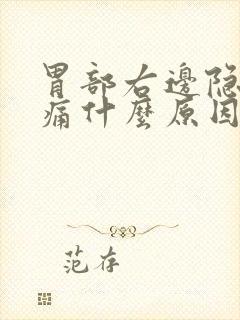 胃部右邊隐
痛什麼原因
范存